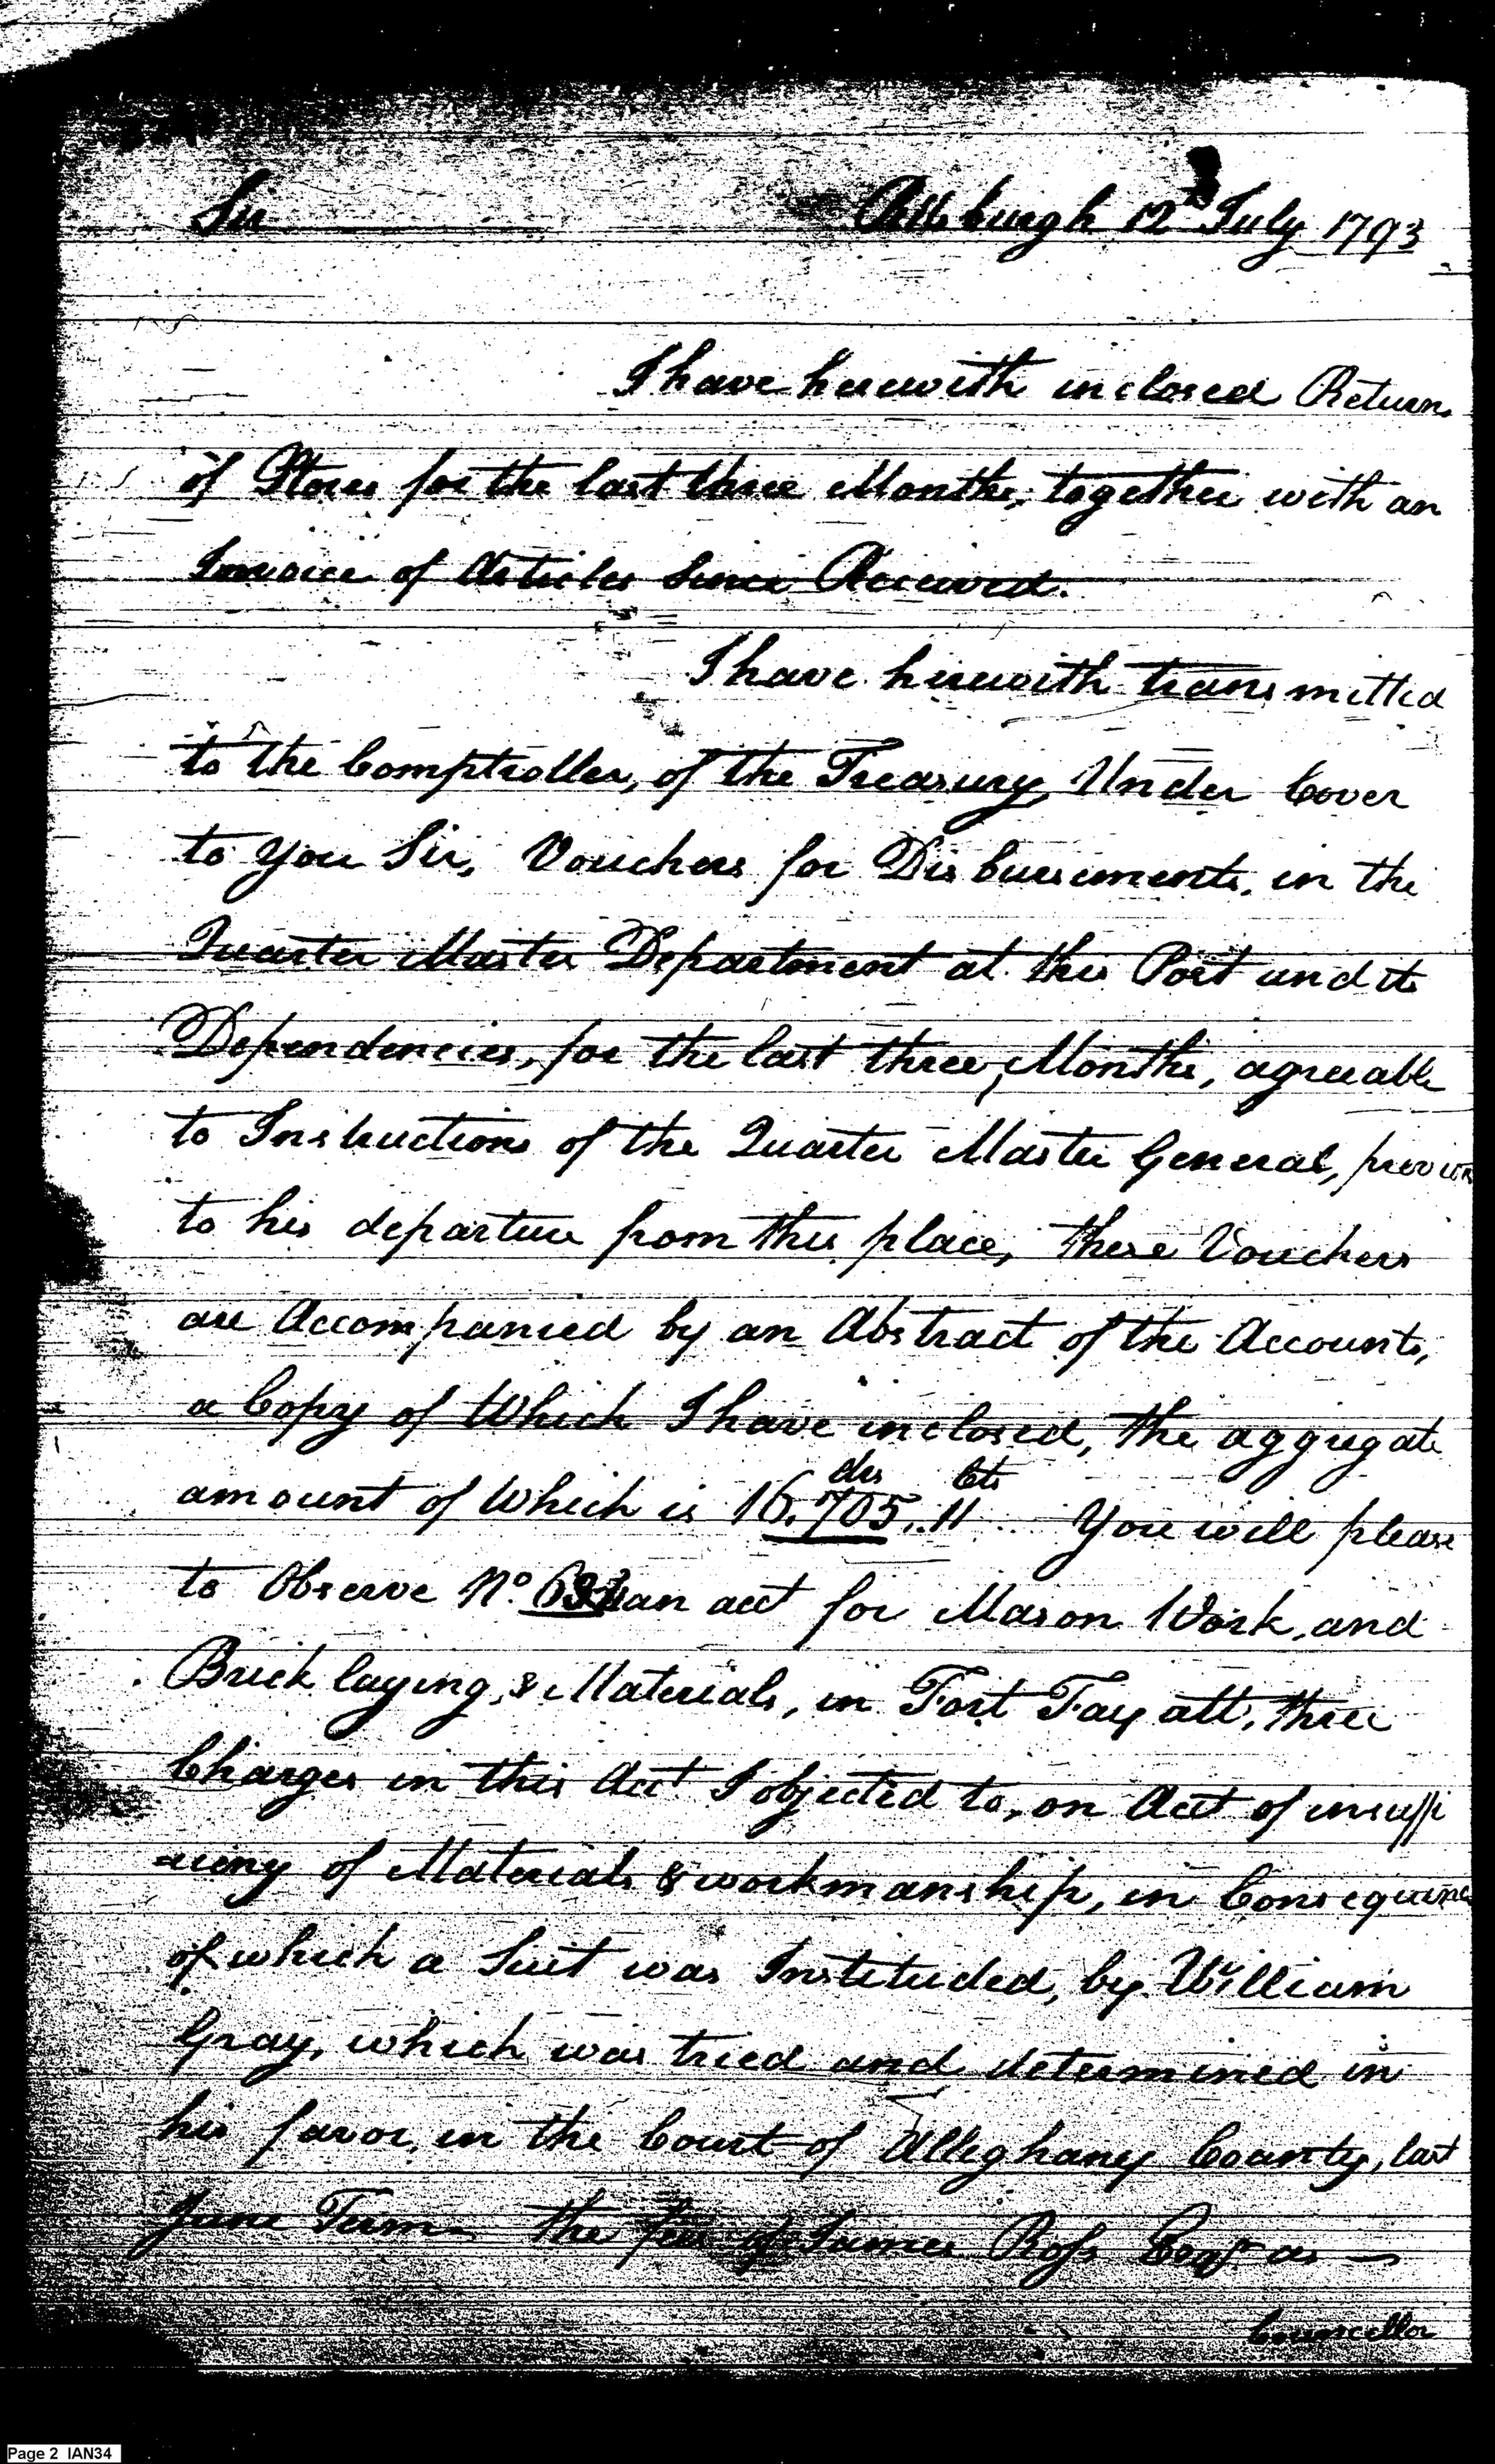 Sir Pittsburgh 12th July 1793
I have herewith inclosed Return
of Stores for the last three Months, together with an
Invoice of Articles Since Received.
I have herewith transmitted
to the Comptroller, of the Treasury, Under Cover
to you Sir, Vouchers for Disbursements, in the
Quarter Master Department at this Post and its
Dependencies, for the last three, Months, agreeable
to Instructions of the Quarter Master General, previous
to his departure from this place, these Vouchers
are Accompanied by an Abstract of the Accounts,
a Copy of Which I have inclosed, the aggregate
dls Cts
amount of Which is 16.705..11 You will please
to Observe No. an acct for Mason Work, and
Brick laying, & Materials, in Fort Fayatt, three
Charges in this Acct I objected to, on Acct of insuffi
-ciency of Materials & workmanship, in Consequence
of which a Suit was Instituded, by William
Gray, which was tried and determined in
his favor, in the Court of Alleghany County, last
June Term. the fee of James Ross Esqr as —
Councellor
Page 2 IAN34